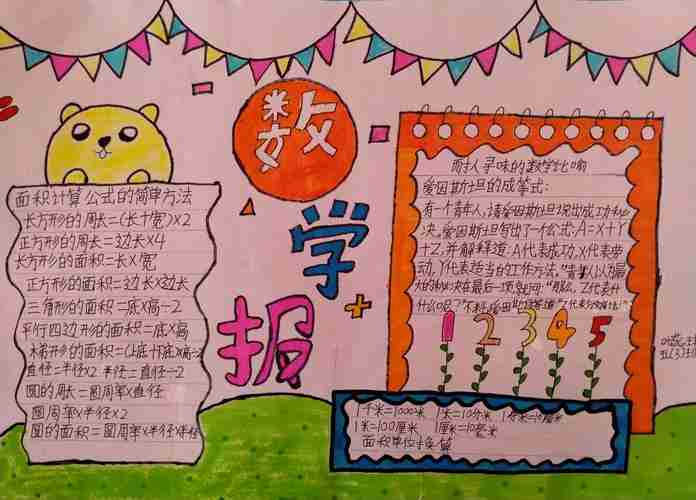 数
学
报
面积计算公式的简单方法
长方形的周长=(长十宽)×2
正方形的周长=边长×4
长方形的面积=长×宽
正方形的面积=边长×边长
三角形的面积=底×高÷2
平行四边形的面积=底×高
梯形的面积=(上底十下底)×高÷2
直径=半径×2 半径=直径÷2
圆的周长=圆周率×直径
圆周率×半径×2
圆的面积=圆周率×半径×半径
耐人寻味的数学比喻
爱因斯坦的成等式:
有一个青年人,请爱因斯坦说出成功秘
决,爱因斯坦写出了一个公式:A=X+Y
+Z,并解释道:A代表成功,X代表劳
动,Y代表适当的工作方法,
的秘决在最后一项,就问:"那么,Z代表什
什么呢?"
1 2 3 4 5
1千米=1000米 1米=10分米
1米=100厘米 1厘米=10毫米
面积单位换算